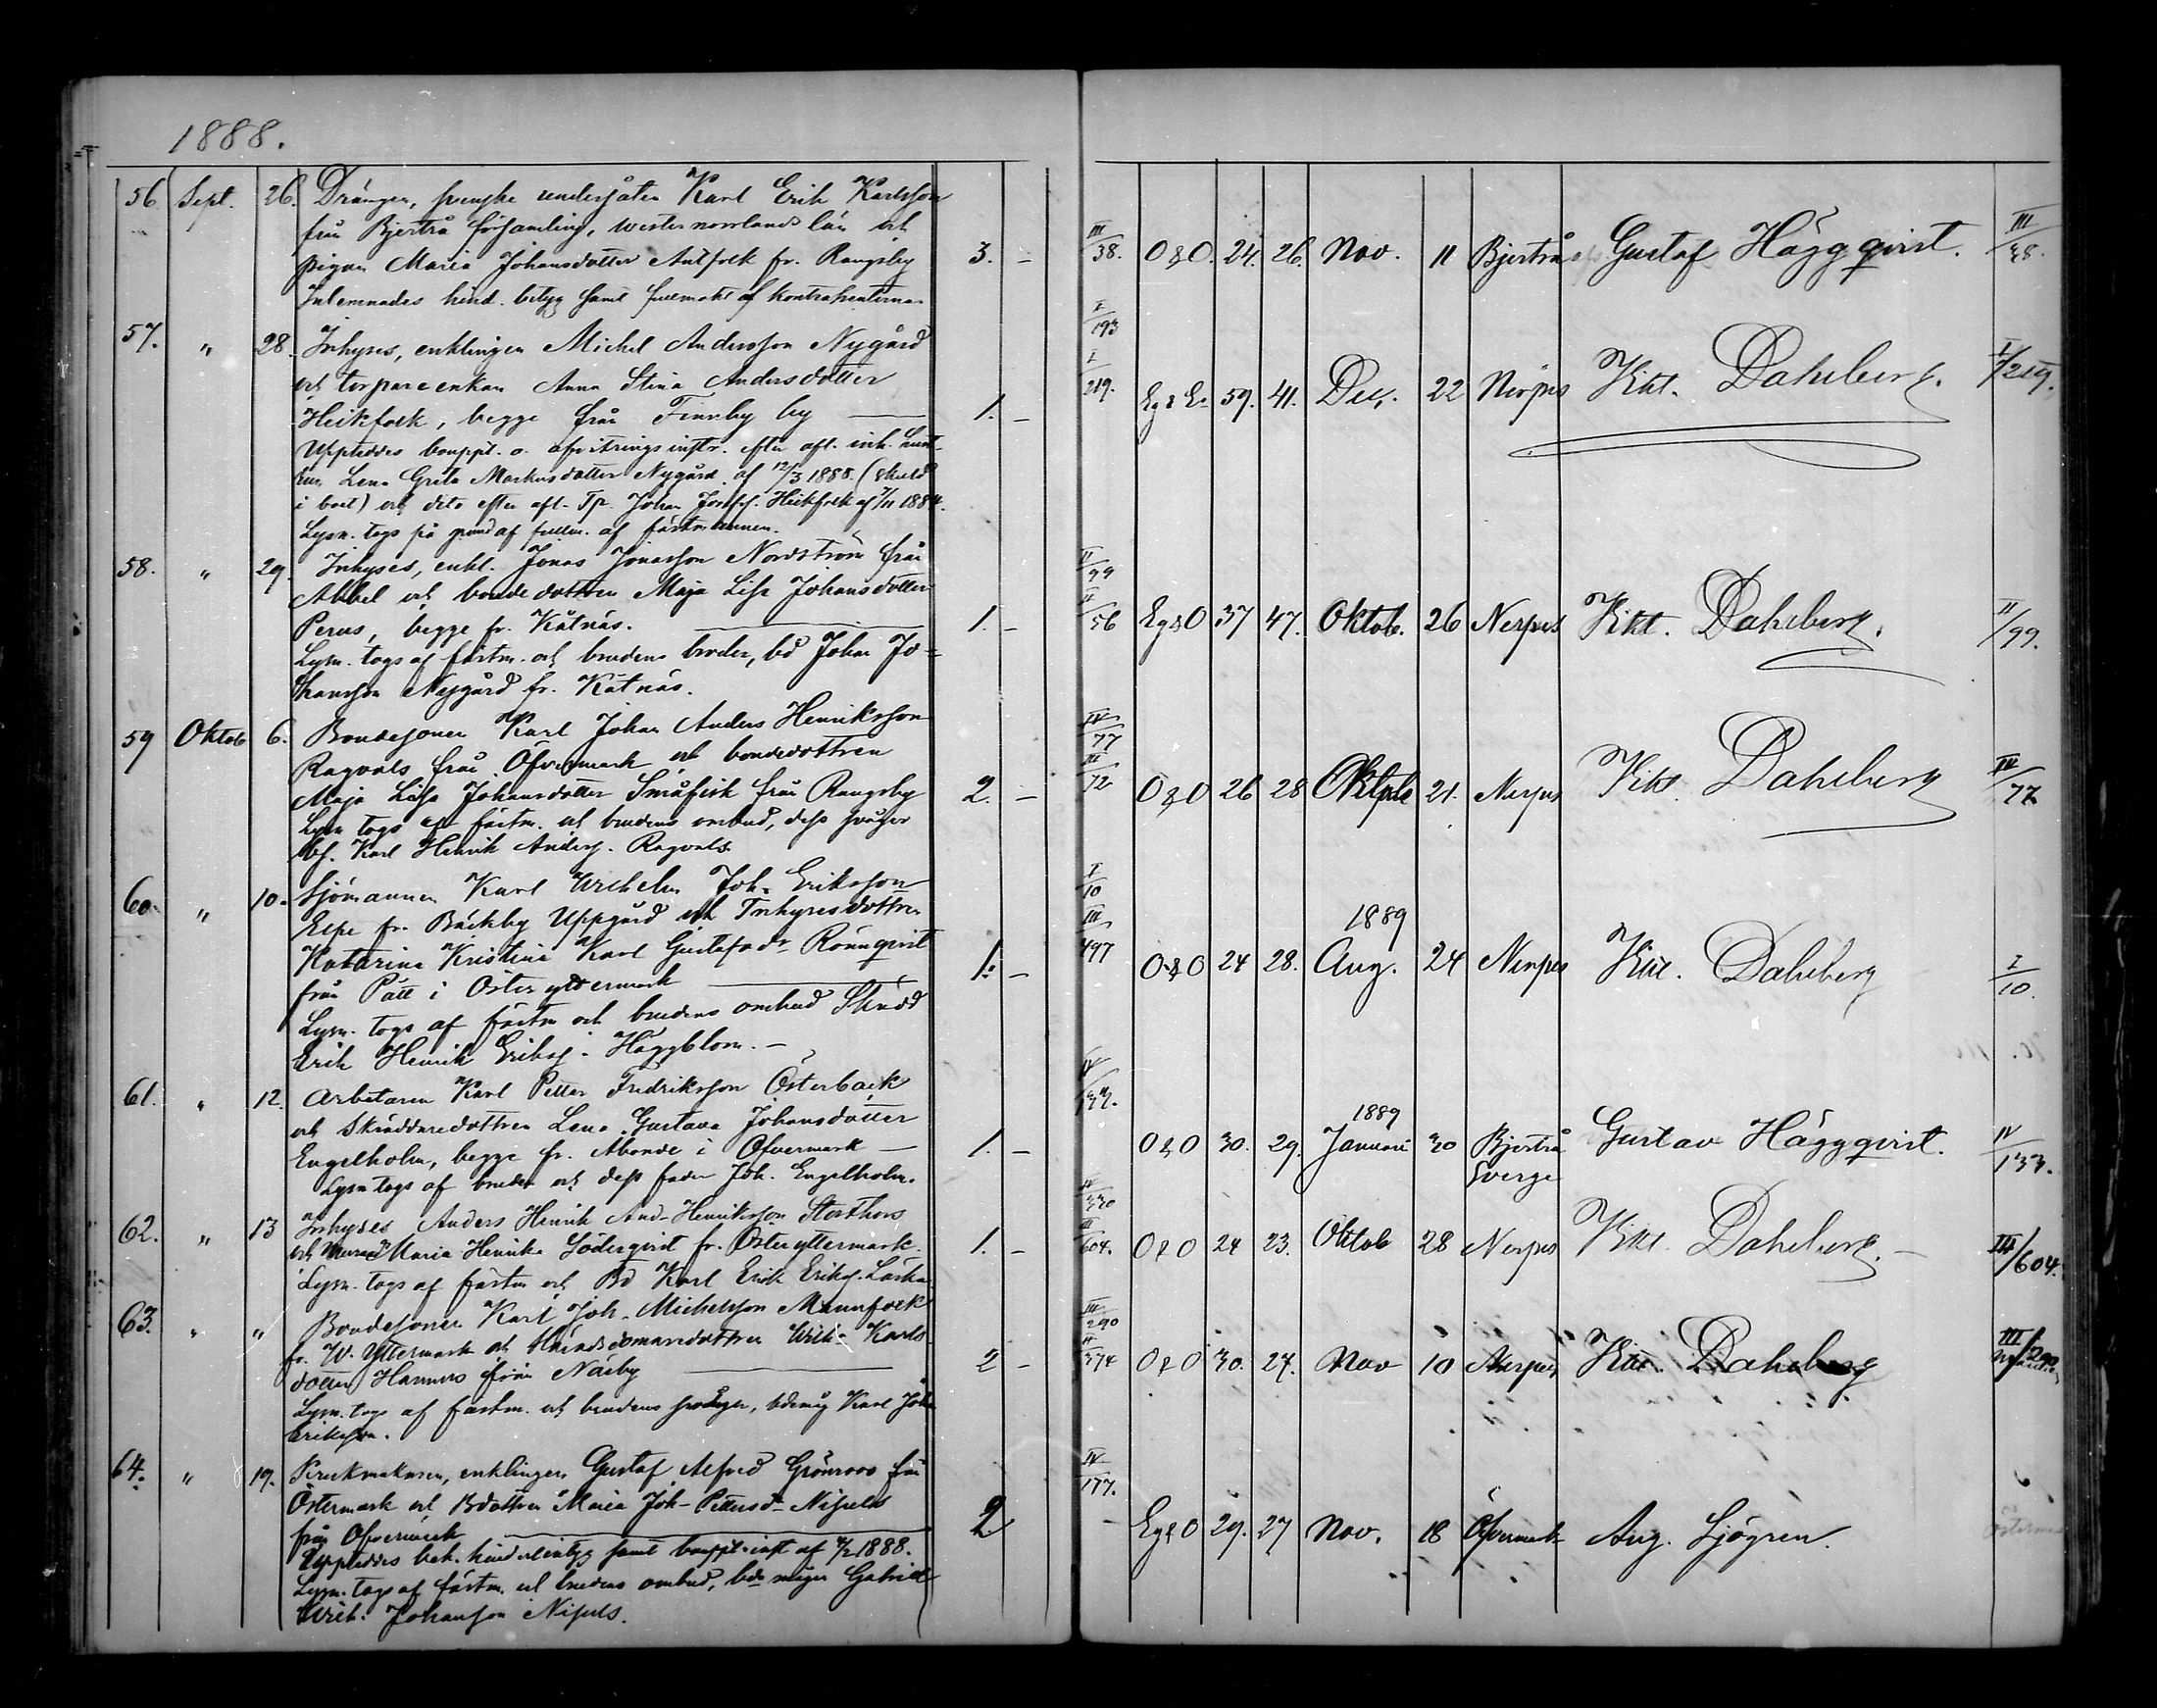 1888.
56 Sept. 26. Drängen, svenske undersåten Karl Erik Karlsson
från Bjertrå församling, Westernorrlands län och
pigan Maria Johansdotter Antfolk fr. Rangsby 3. –
Inlemnades hind. betyg samt fullmakt af kontrahenterna
III/38. O & O. 24. 26. Nov. 11 Bjertrå Gustaf Häggqvist. III/38.
57. " 28. Inhyses, enklingen Michel Andersson Nygård
och torpareenkan Anna Stina Andersdotter
Heikfolk, begge från Finnby by 1. –
Uppteddes bouppt. o. afvitringsinstr. efter afl. inh.
Lena Greta Markusdotter Nygård af 12/3 1888. (skuld
i boet) och dito efter afl. Tp. Johan Josefss. Heikfolk af 7/11 1884.
Lysn. togs på grund af fullm. af fästmannen.
I/193 I/219. Eg & E. 59. 41. Dec. 22 Nerpes Kkt. Dahlberg. I/219.
58. " 29. Inhyses, enkl. Jonas Jonasson Nordström från
Abbel och bondedottren Maja Lisa Johansdotter
Perus, begge fr. Kåtnäs. 1. –
Lysn. togs af fästm. och brudens broder, bd Johan Jo-
hansson Nygård fr. Kåtnäs.
II/99 II/56 Eg & O 37 47. Oktob. 26 Nerpes Kkt. Dahlberg. II/99.
59 Oktob 6. Bondesonen Karl Johan Anders Henriksson
Ragvals från Öfvermark och bondedottren
Maja Lisa Johansdotter Småfisk från Rangsby 2. –
Lysn togs af fästm. och brudens ombud, dess svåger
bs. Karl Henrik Anderss. Ragvals
IV/77 III/72 O & O 26 28 Oktob 21. Nerpes Kkt. Dahlberg IV/77
60. " 10. Sjömannen Karl Wilhelm Joh. Eriksson
Elpe fr. Bäckby Uppgård och Inhysesdottren
Katarina Kristina Karl Gustafsdr Rönnqvist 1. –
från Pått i Österyttermark
Lysn. togs af fästm och brudens ombud Skrädd
Erik Henrik Erikss. Häggblom. –
I/10 III/497 O & O 24 28. 1889 Aug. 24 Nerpes Kkt. Dahlberg I/10.
61. " 12. Arbetaren Karl Petter Fredriksson Österback
och Skräddaredottren Lena Gustava Johansdotter
Engelholm, begge fr. Åbonde i Öfvermark 1. –
Lysn togs af bruden och dess fader Joh. Engelholm.
IV/133. O & O 30. 29. 1889 Januari 30 Bjertrå Sverge Gustav Häggqvist. IV/133.
62. " 13 Inhyses Anders Henrik And. Henriksson Storthors
och Maria Henrika Söderqvist fr. Österyttermark. 1. –
Lysn. togs af fästm och Bd Karl Erik Erikss.
IV/330 III/604. O & O 24 23. Oktob 28 Nerpes Kkt. Dahlberg. – III/604.
63. " " Bondesonen Karl Joh. Michelsson Mannfolk
fr. W. Yttermark och Häradsdomaredottren Wilh. Karls
dotter Hannus från Näsby 2 –
Lysn. togs af fästm. och brudens svåger, Karl Joh.
Eriksson.
III/290 II/374 O & O 30. 27. Nov 10 Nerpes Kkt. Dahlberg III/290
64. " 19. Kruckmakaren, enklingen Gustaf Alfred Grönroos från
Östermark och Bdottren Maria Joh. Pettersdr Nissels 2
från Öfvermark
Uppteddes beh. hinderlöshetsbetyg samt af 1888.
Lysn. togs af fästm. och brudens ombud, Gabriel
Wilh. Johansson Nissels.
IV/177. Eg & O 29. 27 Nov. 18 Öfvermark Aug. Sjögren.